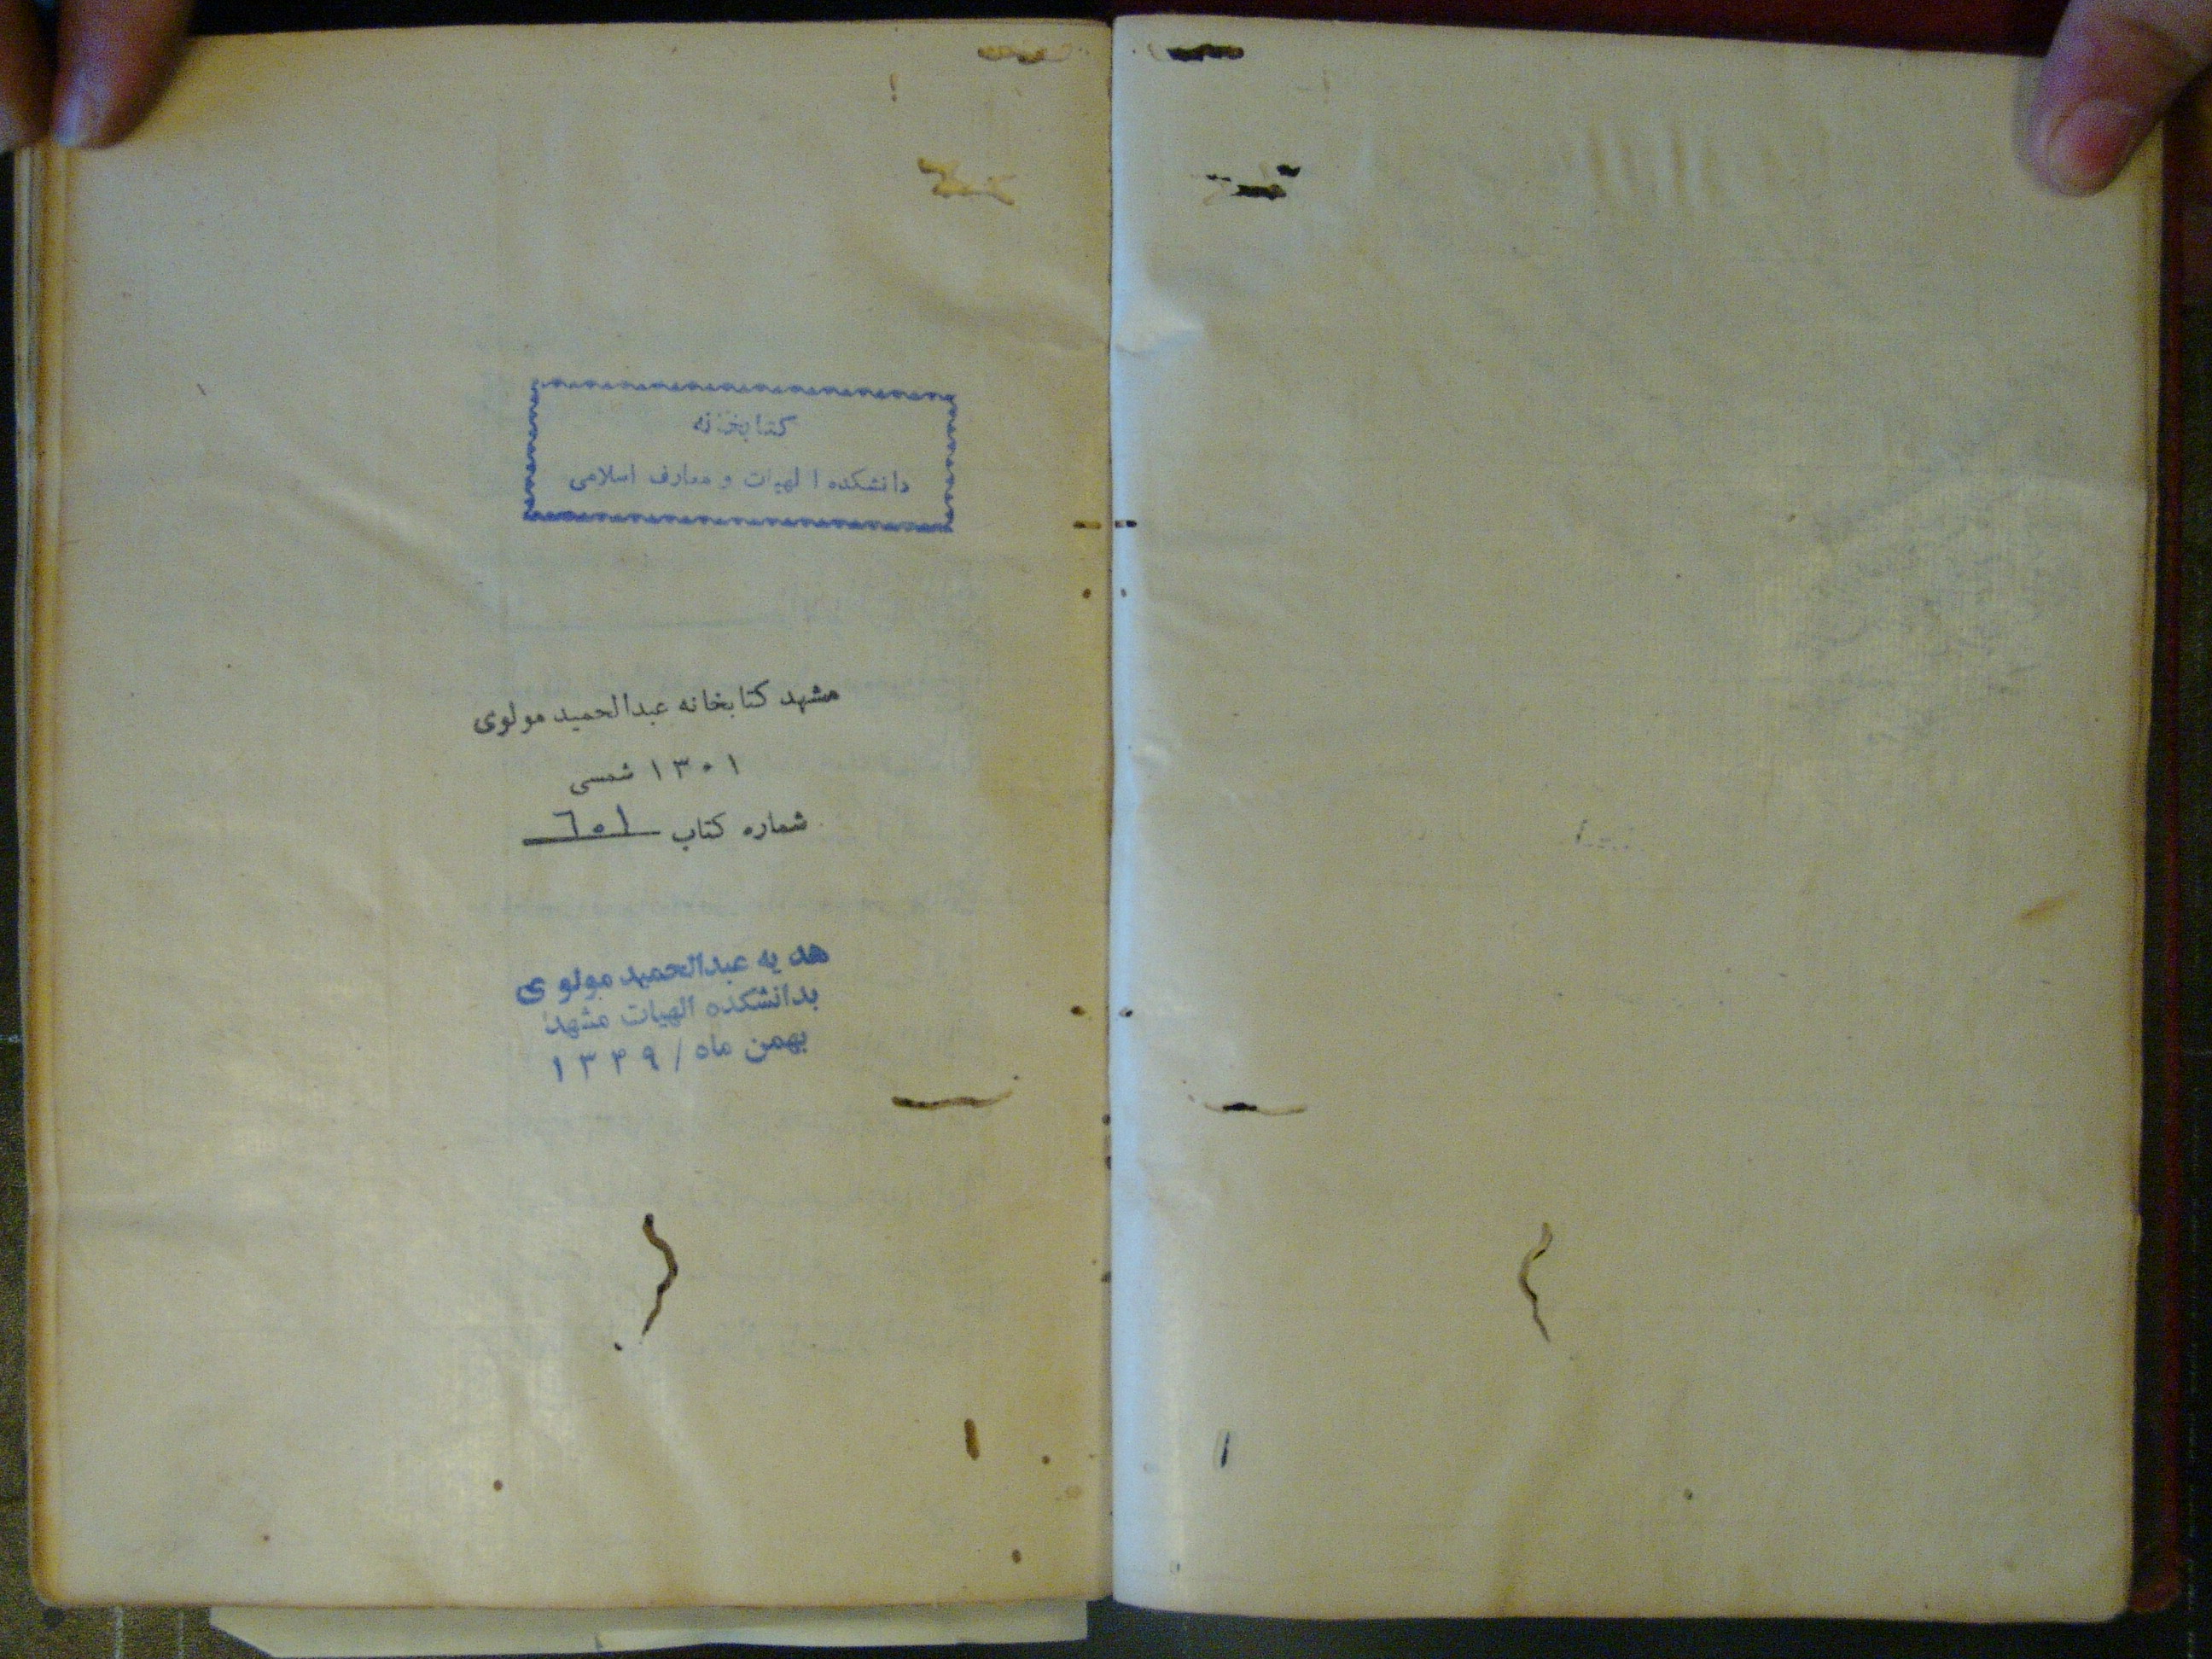 كتابخانه
دانشكده الهيات و معارف اسلامى
مشهد كتابخانه عبدالحميد مولوى
۱۳۰۱ شمسى
شماره كتاب ٦٠١
هديه عبدالحميد مولوى
بدانشكده الهيات مشهد
بهمن ماه / ۱۳۴۹